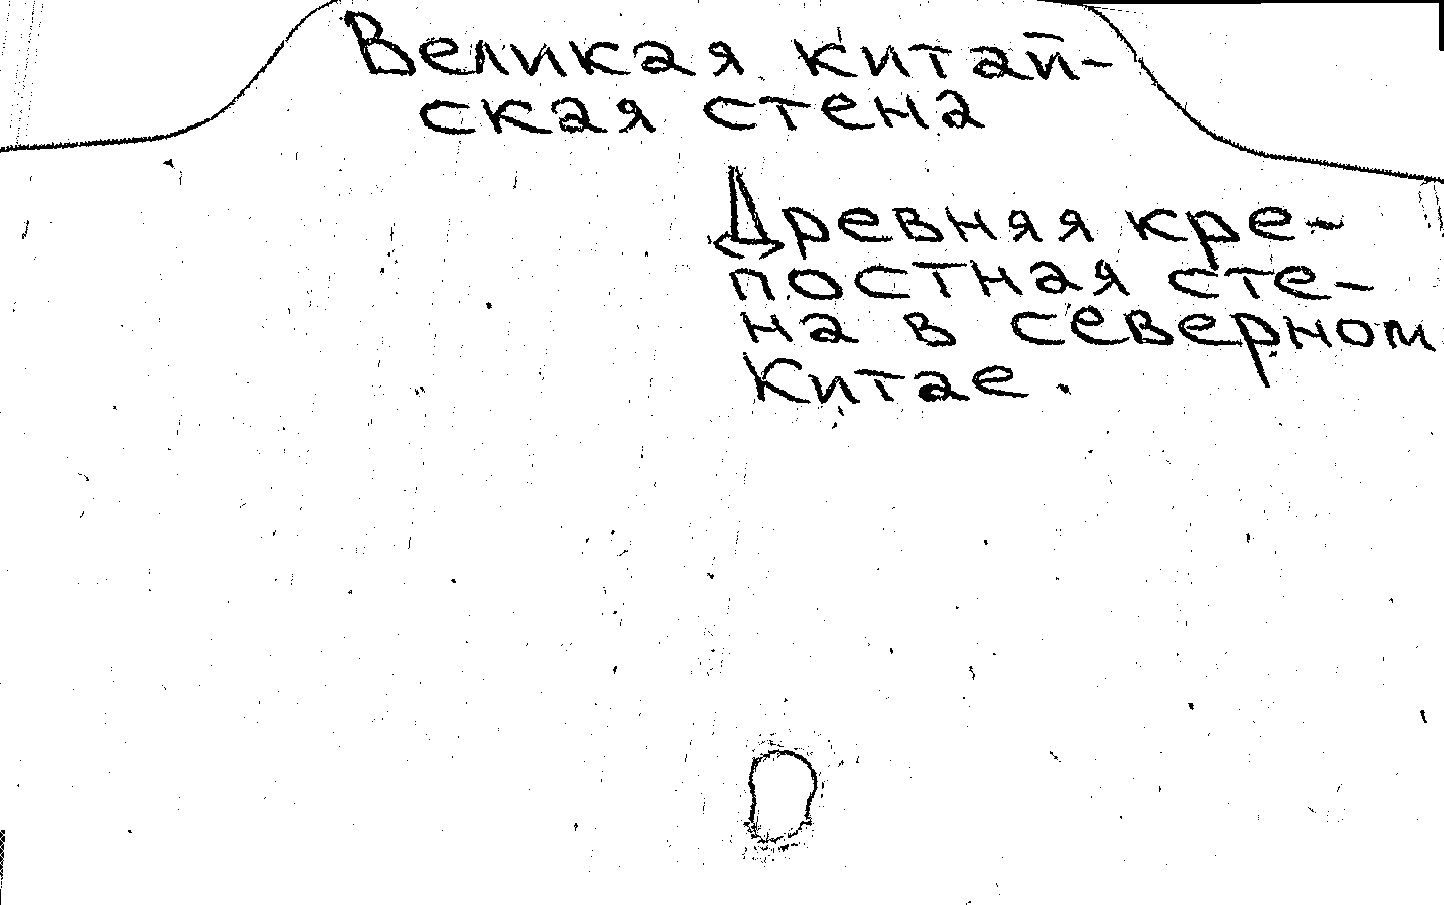 Великая китай-
ская стена
Древняя кре-
постная сте-
на в северном
Китае.